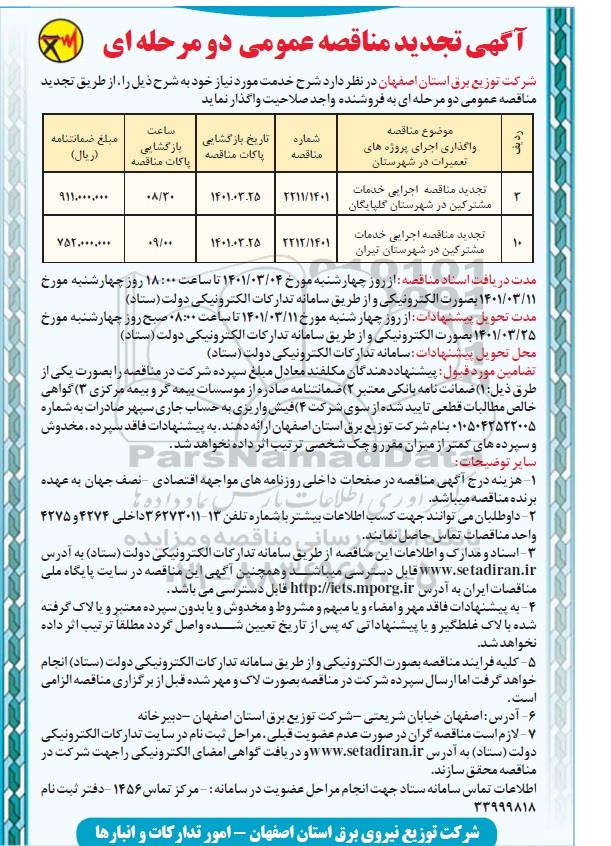 آگهی تجدید مناقصه عمومی دو مرحله ای
شرکت توزیع برق استان اصفهان در نظر دارد شرح خدمت مورد نیاز خود به شرح ذیل را، از طریق تجدید
مناقصه عمومی دو مرحله ای به فروشنده واجد صلاحیت واگذار نماید
ردیف
موضوع مناقصه واگذاری اجرای پروژه های تعمیرات در شهرستان
شماره مناقصه
تاریخ بازگشایی پاکات مناقصه
ساعت بازگشایی پاکات مناقصه
مبلغ ضمانتنامه (ریال)
۳ تجدید مناقصه اجرایی خدمات مشترکین در شهرستان گلپایگان ۲۲۱۱/۱۴۰۱ ۱۴۰۱.۰۳.۲۵ ۰۸/۳۰ ۹۱۱.۰۰۰,۰۰۰
۱۰ تجدید مناقصه اجرایی خدمات مشترکین در شهرستان تیران ۲۲۱۲/۱۴۰۱ ۱۴۰۱.۰۳.۲۵ ۰۹/۰۰ ۷۵۲.۰۰۰,۰۰۰
مدت دریافت اسناد مناقصه: از روز چهارشنبه مورخ ۱۴۰۱/۰۳/۰۴ تا ساعت ۱۸:۰۰ روز چهارشنبه مورخ
۱۴۰۱/۰۳/۱۱ بصورت الکترونیکی و از طریق سامانه تدارکات الکترونیکی دولت (ستاد)
مدت تحویل پیشنهادات: از روز چهارشنبه مورخ ۱۴۰۱/۰۳/۱۱ تا ساعت ۰۸:۰۰ صبح روز چهارشنبه مورخ
۱۴۰۱/۰۳/۲۵ بصورت الکترونیکی و از طریق سامانه تدارکات الکترونیکی دولت (ستاد)
محل تحویل پیشنهادات: سامانه تدارکات الکترونیکی دولت (ستاد)
تضامین مورد قبول: پیشنهاددهندگان مکلفند معادل مبلغ سپرده شرکت در مناقصه را بصورت یکی از
طرق ذیل: ۱) ضمانت نامه بانکی معتبر ۲) ضمانتنامه صادره از موسسات بیمه گر و بیمه مرکزی ۳) گواهی
خالص مطالبات قطعی تایید شده از سوی شرکت ۴) فیش واریزی به حساب جاری سپهر صادرات به شماره
۰۱۰۵۰۴۲۵۲۲۰۰۵ بنام شرکت توزیع برق استان اصفهان ارائه دهند. به پیشنهادات فاقد سپرده، مخدوش
و سپرده های کمتر از میزان مقرر و چک شخصی ترتیب اثر داده نخواهد شد.
سایر توضیحات:
۱- هزینه درج آگهی مناقصه در صفحات داخلی روزنامه های مواجهه اقتصادی -نصف جهان به عهده
برنده مناقصه میباشد.
۲- داوطلبان می توانند جهت کسب اطلاعات بیشتر با شماره تلفن ۱۳-۳۶۲۷۳۰۱۱ داخلی ۴۲۷۴ و ۴۲۷۵
واحد مناقصات تماس حاصل نمایند.
۳- اسناد و مدارک و اطلاعات این مناقصه از طریق سامانه تدارکات الکترونیکی دولت (ستاد) به آدرس
www.setadiran.ir قابل دسترسی میباشد و همچنین آگهی این مناقصه در سایت پایگاه ملی
مناقصات ایران به آدرس http://iets.mporg.ir قابل دسترسی می باشد.
۴- به پیشنهادات فاقد مهر و امضاء و یا مبهم و مشروط و مخدوش و یا بدون سپرده معتبر و یا لاک گرفته
شده با لاک غلطگیر و یا پیشنهاداتی که پس از تاریخ تعیین شده واصل گردد مطلقاً ترتیب اثر داده
نخواهد شد.
۵- کلیه فرایند مناقصه بصورت الکترونیکی و از طریق سامانه تدارکات الکترونیکی دولت (ستاد) انجام
خواهد گرفت اما ارسال سپرده شرکت در مناقصه بصورت لاک و مهر شده قبل از برگزاری مناقصه الزامی
است.
۶- آدرس: اصفهان خیابان شریعتی -شرکت توزیع برق استان اصفهان -دبیرخانه
۷- لازم است مناقصه گران در صورت عدم عضویت قبلی، مراحل ثبت نام در سایت تدارکات الکترونیکی
دولت (ستاد) به آدرس www.setadiran.ir و دریافت گواهی امضای الکترونیکی را جهت شرکت در
مناقصه محقق سازند.
اطلاعات تماس سامانه ستاد جهت انجام مراحل عضویت در سامانه: -مرکز تماس ۱۴۵۶ -دفتر ثبت نام
۳۳۹۹۹۸۱۸
شرکت توزیع نیروی برق استان اصفهان - امور تدارکات و انبارها